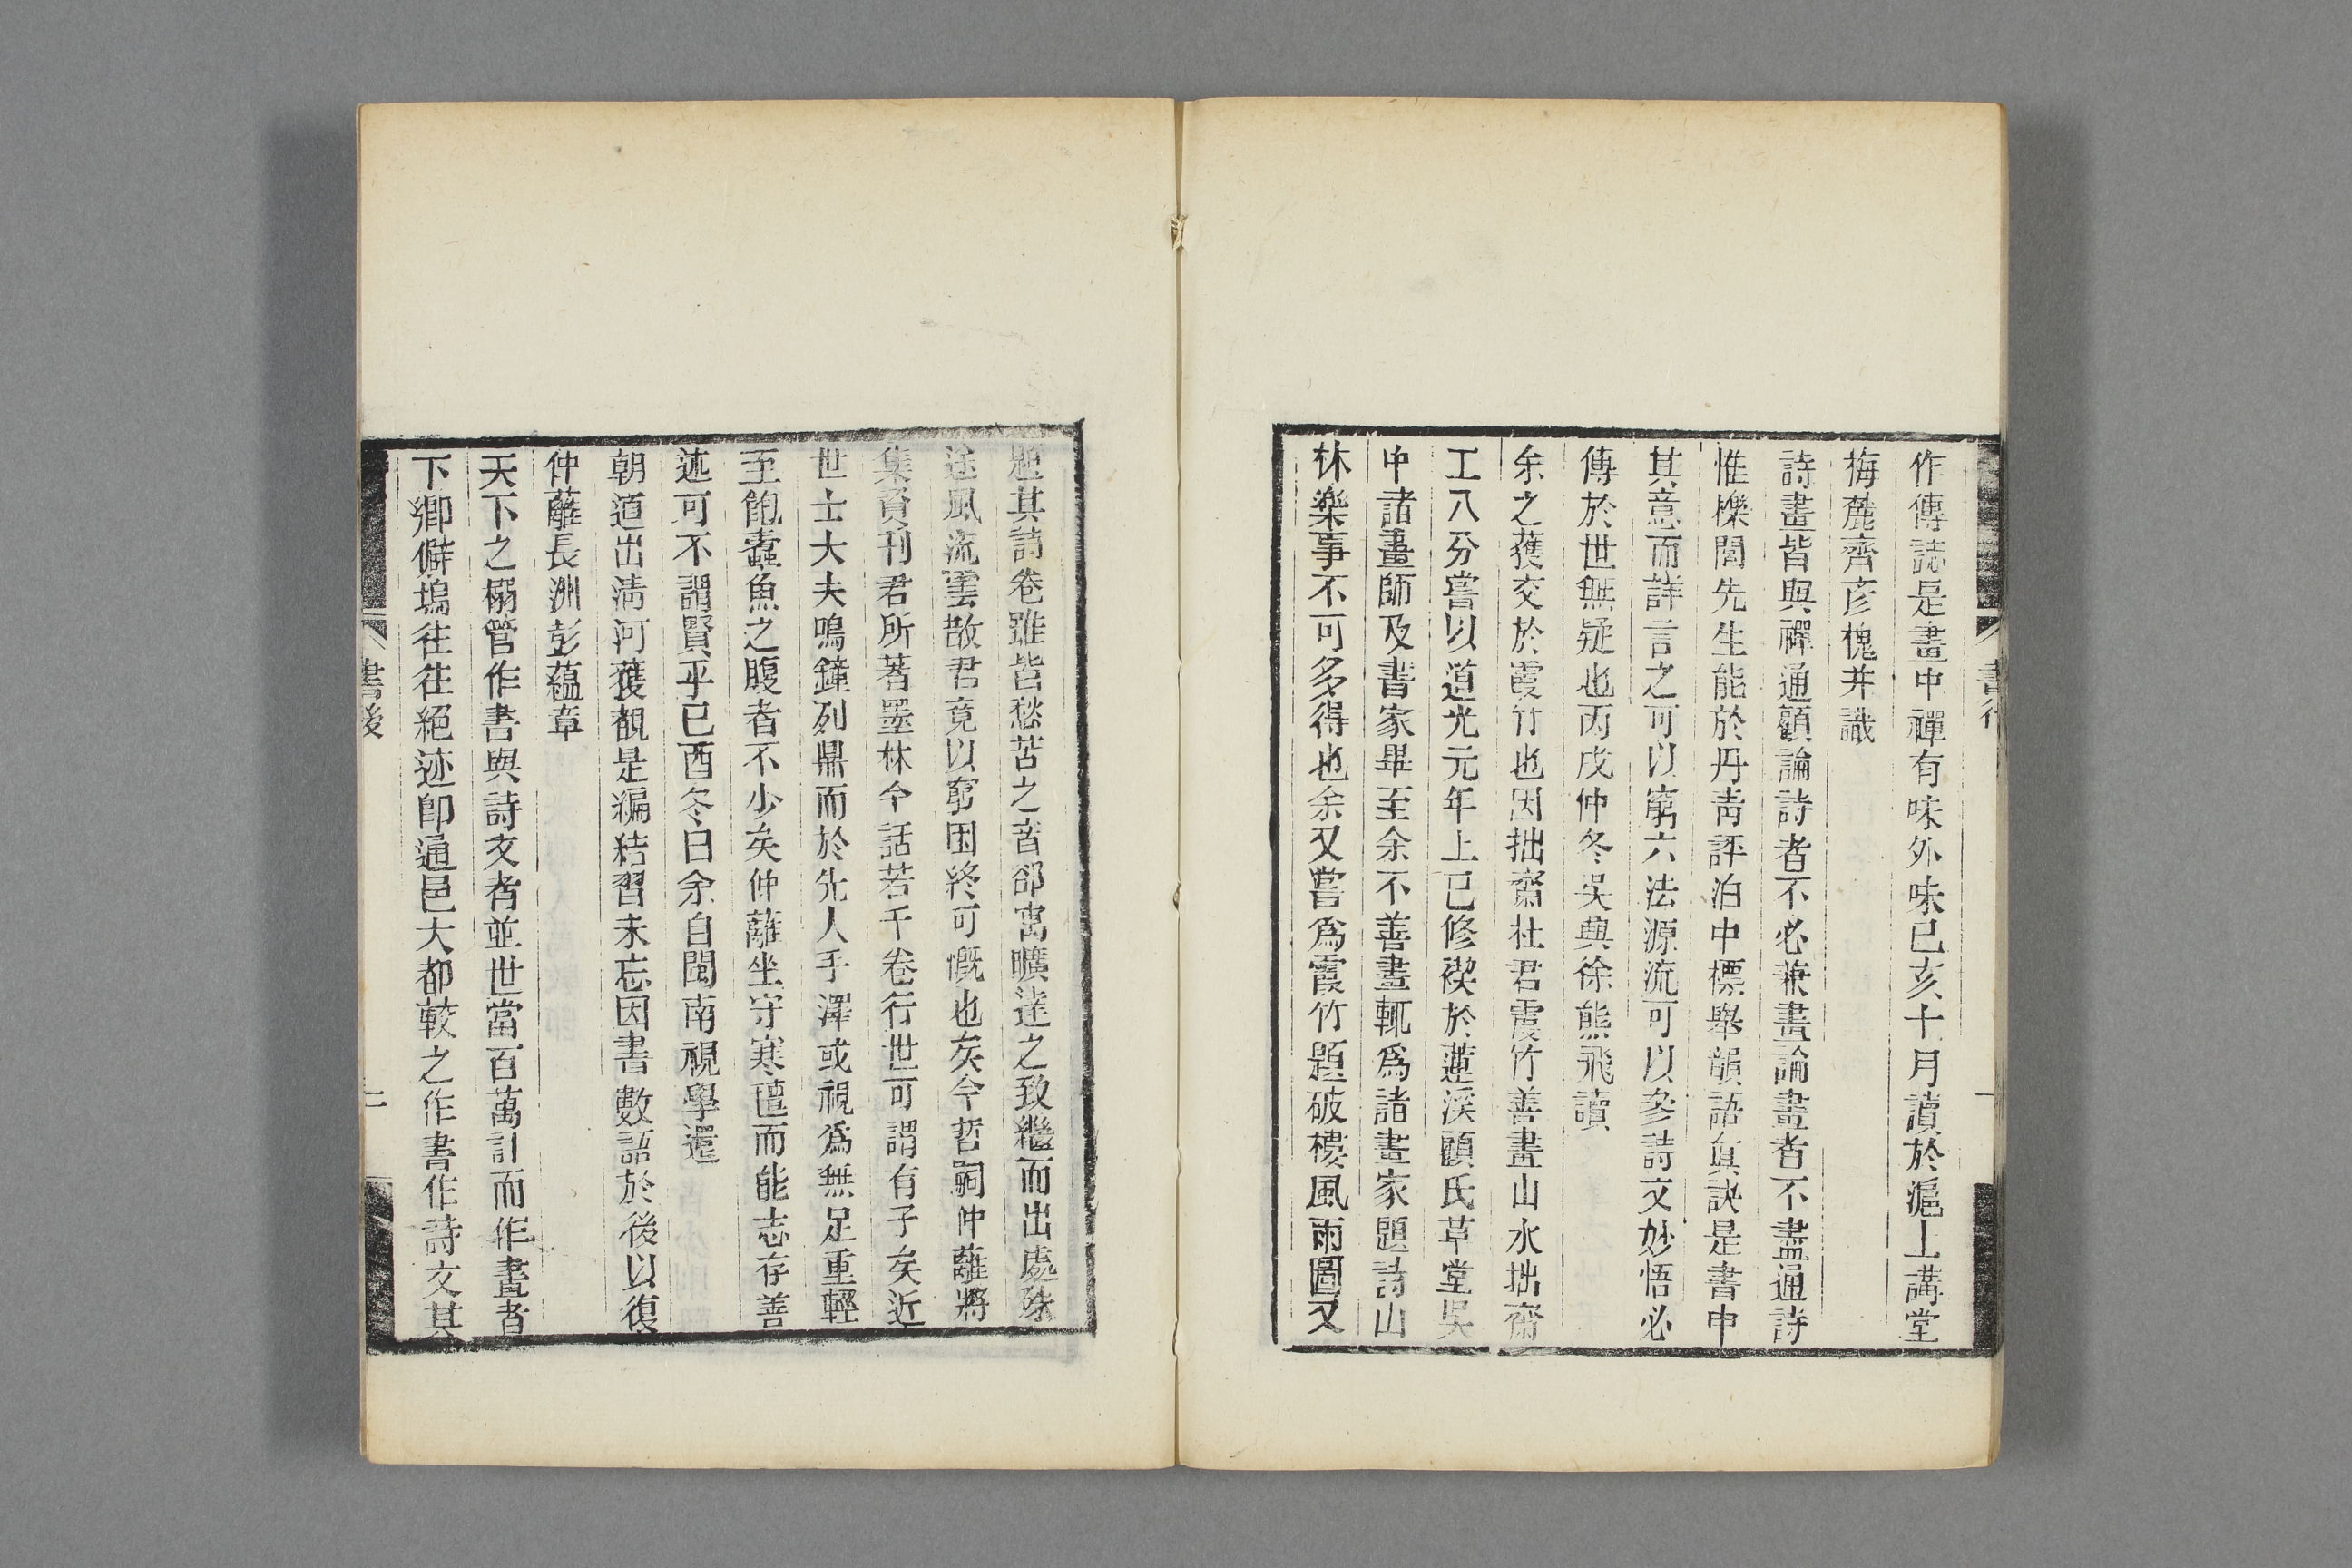 作傳誌是畫中禪有味外味己亥十月讀於滬上講堂
梅麓齊彥槐并識
詩畫皆與禪通顧論詩者不必兼畫論畫者不盡通詩
惟櫟閒先生能於丹青評泊中標舉韻語眞訣是書中
其意而詳言之可以窮六法源流可以參詩文妙悟必
傳於世無疑也丙戌仲冬吳興徐熊飛讀
余之蒦交於霞竹也因拙齋杜君霞竹善畫山水拙齋
工八分嘗以道光元年上巳修禊於蓮溪顧氏草堂吳
中諸畫師及書家畢至余不善畫輒爲諸畫家題詩山
林樂事不可多得也余又嘗爲霞竹題破樓風雨圖又
書後
題其詩卷雖皆愁苦之音卻寓曠達之致繼而出處殊
途風流雲散君竟以窮困終可慨也矣今哲嗣仲蘺將
集資刊君所著墨林今話若干卷行世可謂有子矣近
世士大夫鳴鐘列鼎而於先人手澤或視爲無足重輕
至飽蠹魚之腹者不少矣仲蘺坐守寒氊而能志存善
述可不謂賢乎己酉冬日余自閩南視學還
朝道出淸河獲覩是編結習未忘因書數語於後以復
仲蘺長洲彭蘊章
天下之搦管作書與詩文者並世當百萬計而作畫者
下鄉僻塢往往絕迹卽通邑大都較之作書作詩文其
書後
二